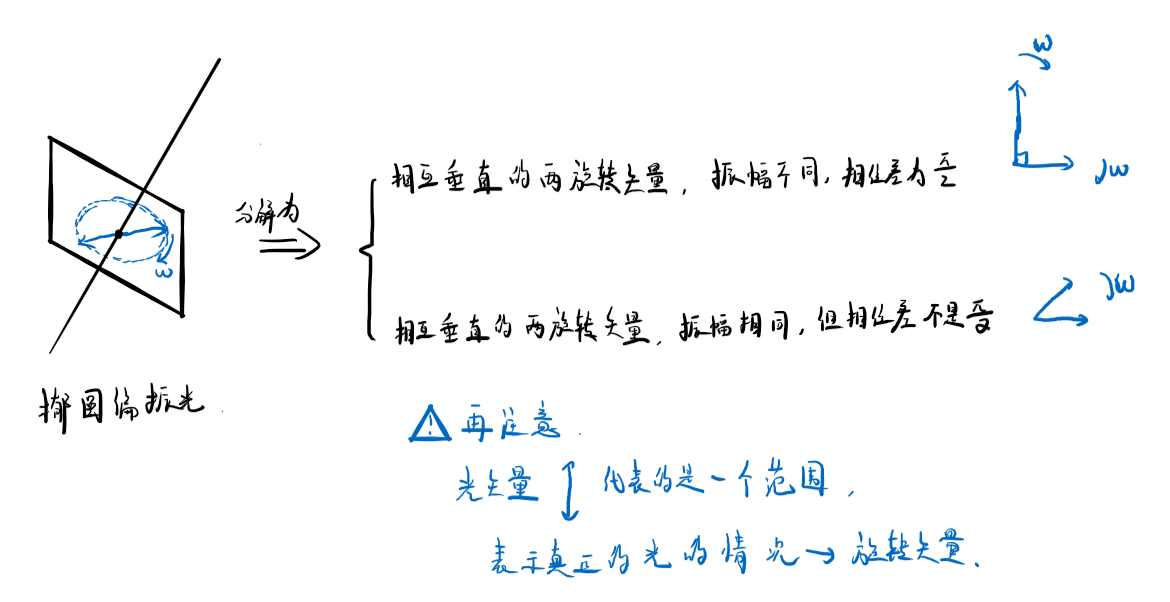 ω
分解为
相互垂直的两旋转矢量，振幅不同，相位差为π/2
ω
ω
相互垂直的两旋转矢量，振幅相同，但相位差不是π/2
ω
椭圆偏振光
⚠ 再注意
光矢量 ↕ 代表的是一个范围，
表示真正的光的情况→旋转矢量.